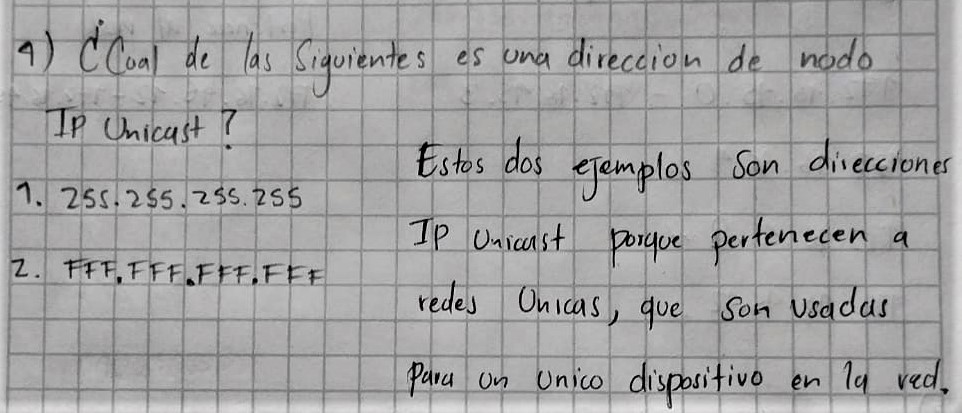 9) ¿Cual de las Siguientes es una direccion de nodo
IP Unicast ?
1. 255.255.255.255
2. FFF.FFF.FFF.FFF
Estos dos ejemplos Son direcciones
IP Unicast porque pertenecen a
redes Unicas, que son usadas
para un Unico dispositivo en la red.